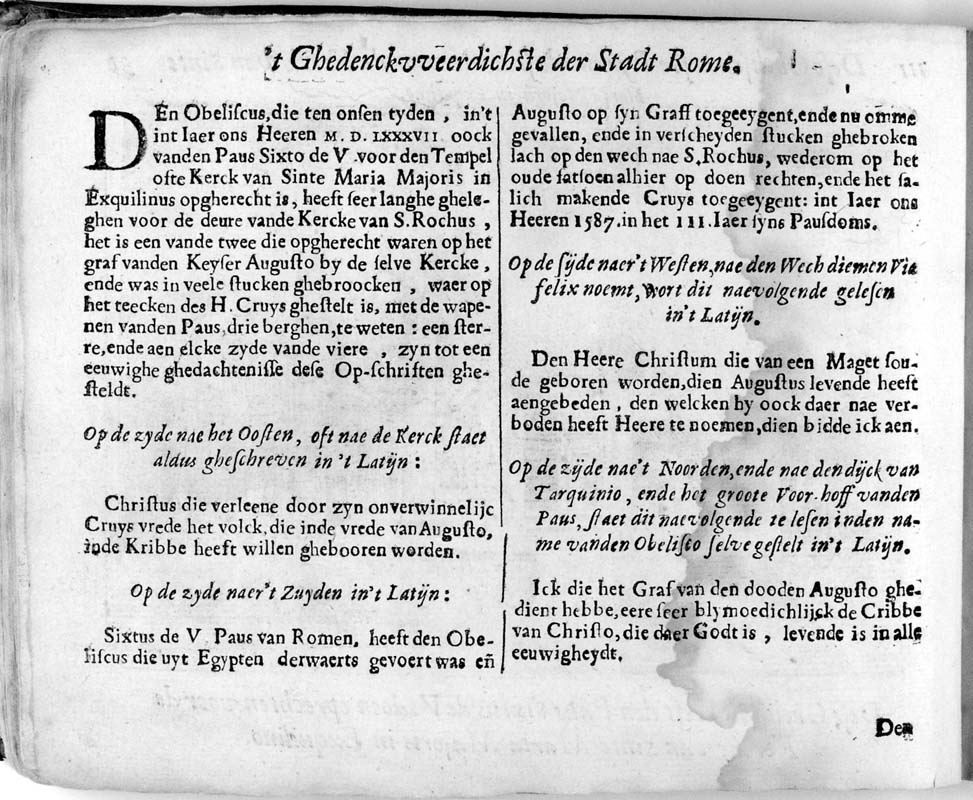 't Ghedenckvveerdichſte der Stadt Rome.
DEn Obeliſcus, die ten onſen tyden, in't
int Iaer ons Heeren M. D. LXXXVII oock
vanden Paus Sixto de V. voor den Tempel
ofte Kerck van Sinte Maria Majoris in
Exquilinus opgherecht is, heeft ſeer langhe ghele-
ghen voor de deure vande Kercke van S. Rochus,
het is een vande twee die opgherecht waren op het
graf vanden Keyſer Auguſto by de ſelve Kercke,
ende was in veele ſtucken ghebroocken, waer op
het teecken des H. Cruys gheſtelt is, met de wape-
nen vanden Paus, drie berghen, te weten: een ſter-
re, ende aen elcke zyde vande viere, zyn tot een
eeuwighe ghedachteniſſe deſe Op-ſchriften ghe-
ſteldt.
Op de zyde nae het Ooſten, oft nae de Kerck ſtaet
aldus gheſchreven in 't Latijn:
Chriſtus die verleene door zyn onverwinnelijc
Cruys vrede het volck, die inde vrede van Auguſto,
inde Kribbe heeft willen ghebooren worden.
Op de zyde naer't Zuyden in't Latijn:
Sixtus de V. Paus van Romen, heeft den Obe-
liſcus die uyt Egypten derwaerts gevoert was en̄
Auguſto op ſyn Graff toegeeygent, ende nu omme
gevallen, ende in verſcheyden ſtucken ghebroken
lach op den wech nae S. Rochus, wederom op het
oude fatſoen alhier op doen rechten, ende het ſa-
lich makende Cruys toegeeygent: int Iaer ons
Heeren 1587. in het III. Iaer ſyns Pauſdoms.
Op de ſijde naer't Weſten, nae den Wech diemen Via
felix noemt, wort dit naevolgende geleſen
in't Latijn.
Den Heere Chriſtum die van een Maget ſou-
de geboren worden, dien Auguſtus levende heeft
aengebeden, den welcken hy oock daer nae ver-
boden heeft Heere te noemen, dien bidde ick aen.
Op de zijde nae't Noorden, ende nae den dijck van
Tarquinio, ende het groote Voor-hoff vanden
Paus, ſtaet dit naevolgende te leſen inden na-
me vanden Obeliſco ſelve geſtelt in't Latijn.
Ick die het Graf van den dooden Auguſto ghe-
dient hebbe, eere ſeer blymoedichlijck de Cribbe
van Chriſto, die daer Godt is, levende is in alle
eeuwigheydt.
Den